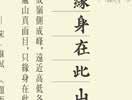 緣身在此山
嶺側成峰，遠近高低各
廬山真面目，只緣身在此